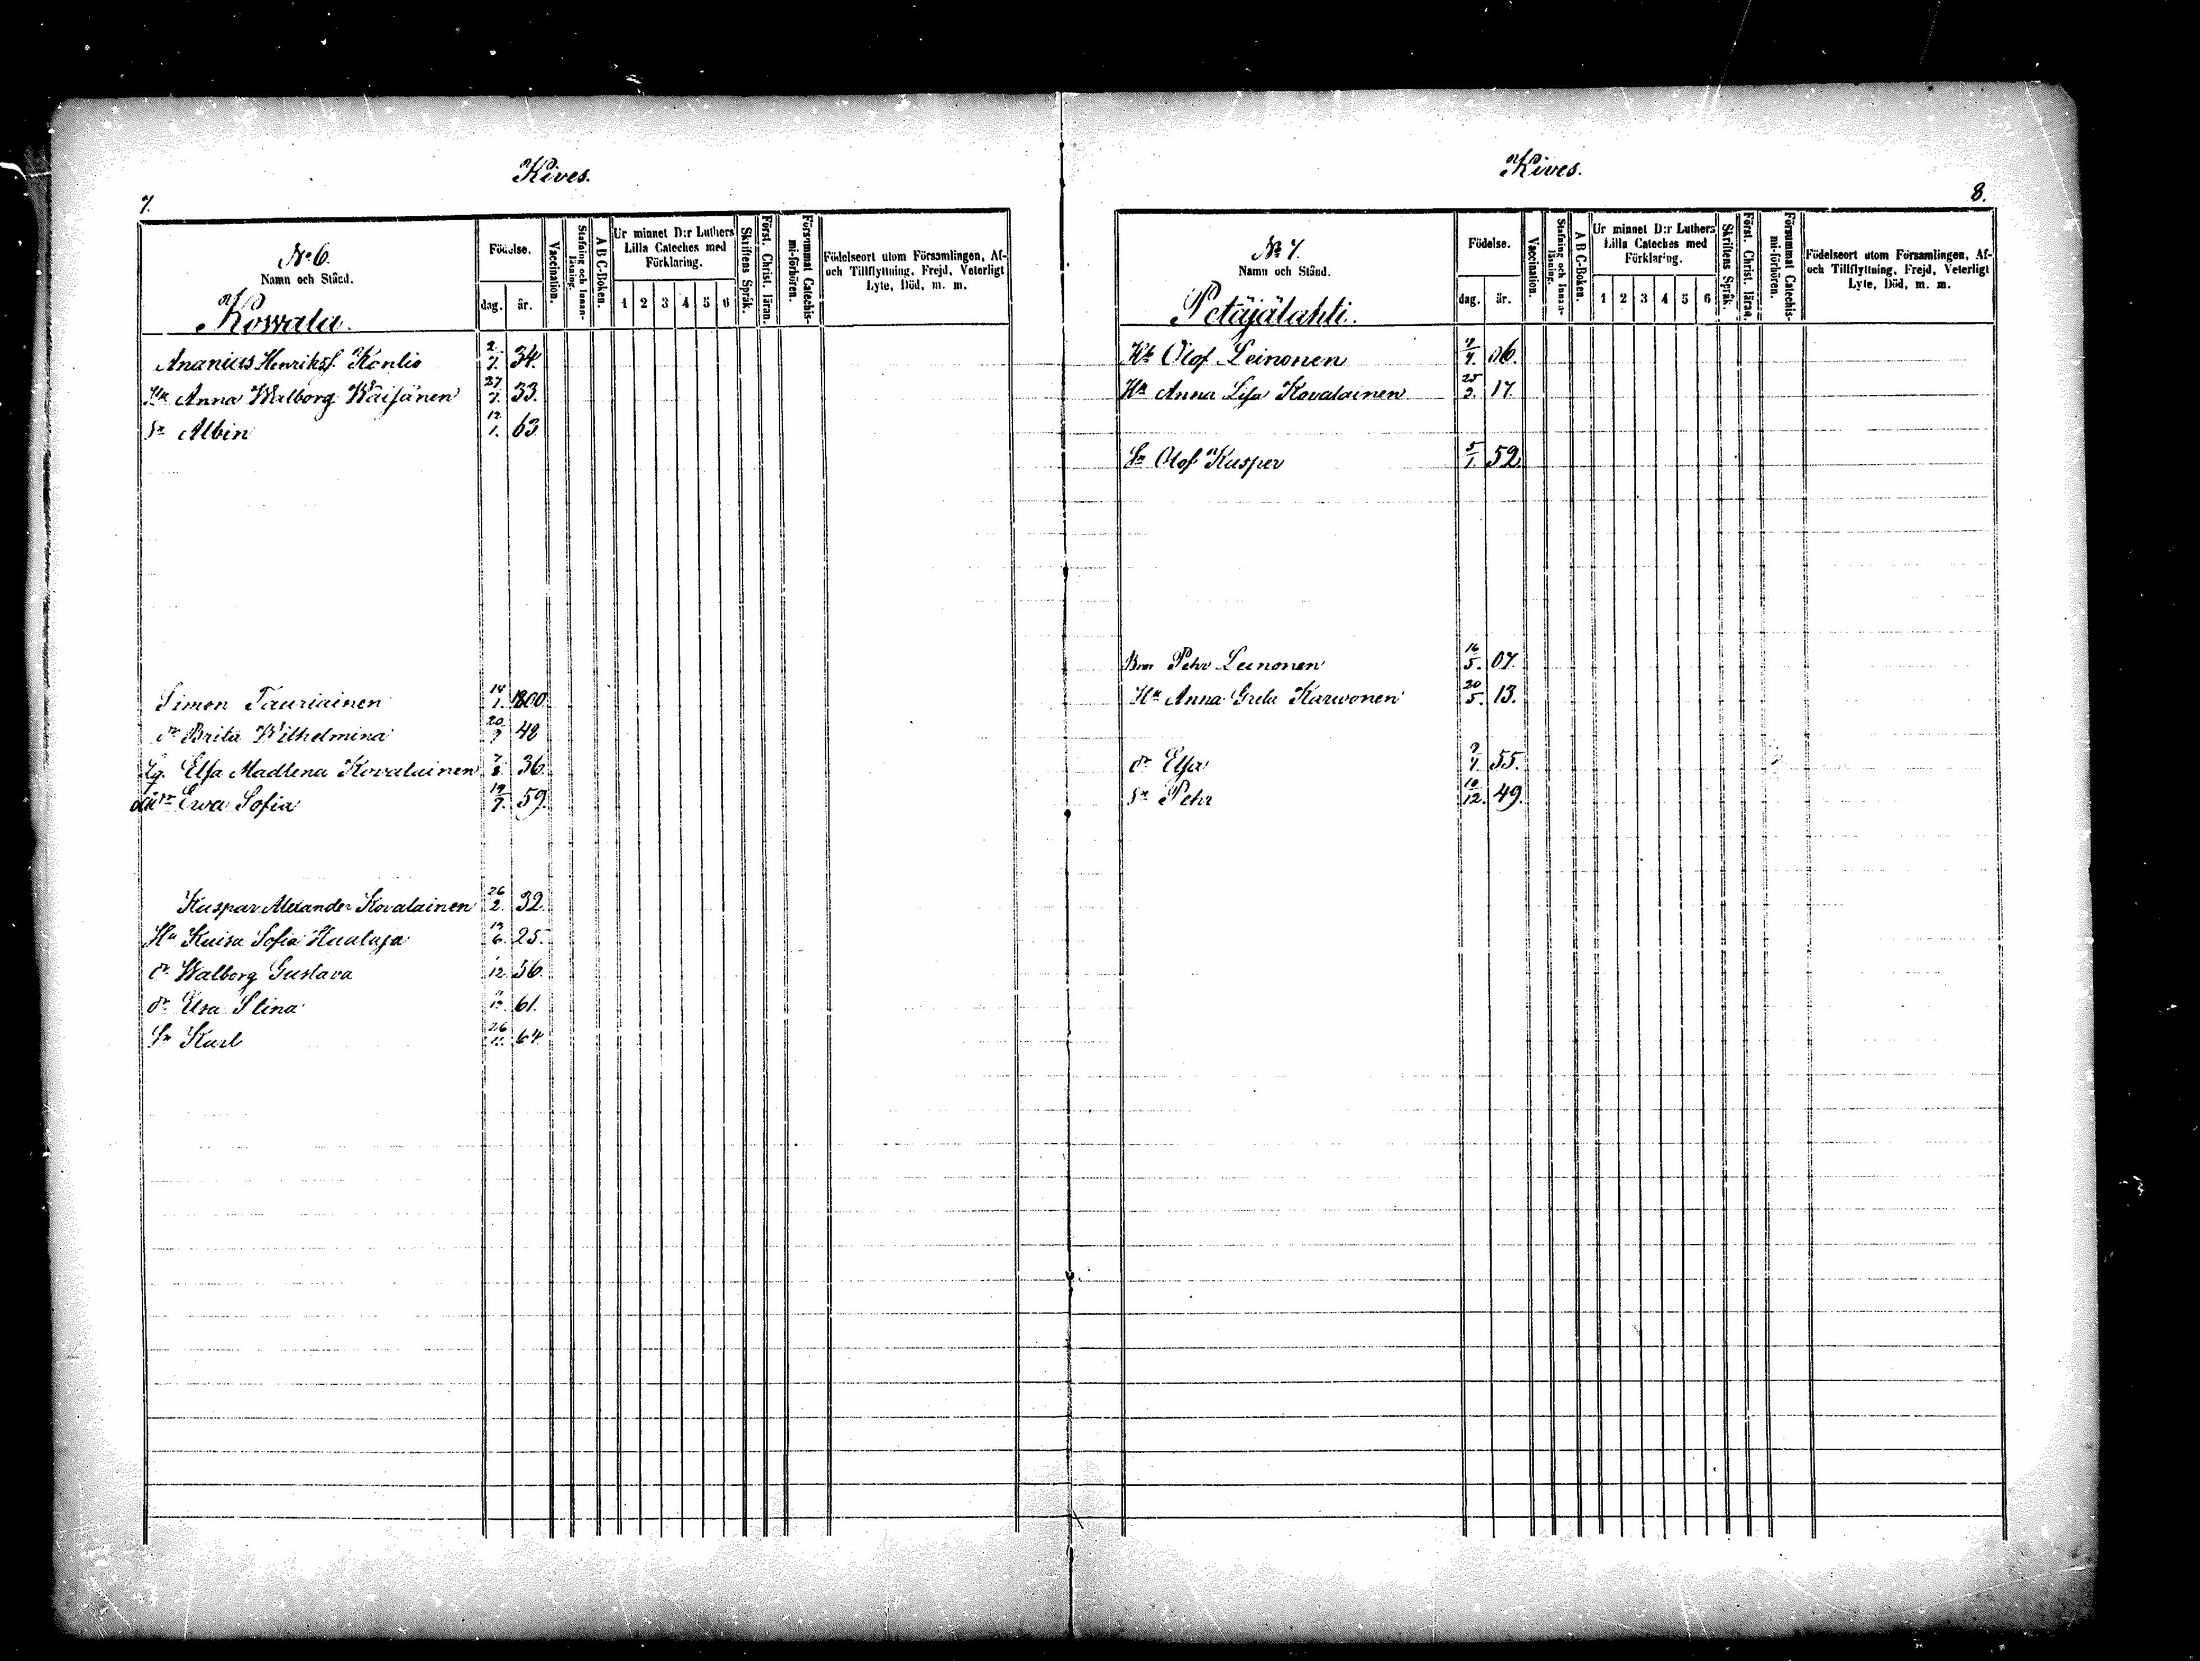 Kives.
7.
No 6.
Namn och Stånd.
Kowala.
Födelse.
dag. år.
Vaccination.
Stafning och Innan-läsning.
A B C-Boken.
Ur minnet D:r Luthers Lilla Cateches med Förklaring.
1 2 3 4 5 6
Skriftens Språk.
Först. Christ. läran.
Försummat Catechis-mi-förhören.
Födelseort utom Församlingen, Af- och Tillflyttning, Frejd, Veterligt Lyte, Död, m. m.
Ananias Henriks. 2/7. 34.
Hu Anna Walborg Wäisänen 27/7. 33.
Sn Albin 12/1. 63
Simon Tauriainen 14/1. 1800.
dr Brita Wilhelmina 20/9 48
Elsa Madlena Kovalainen 36.
Ewa Sofia 19/7. 59.
Kaspar Alexander Kovalainen 26/2. 32.
Hu Kaisa Sofia 25.
dr Walborg Gustava 12. 56.
dr Elsa Stina 61.
Sn Karl 26/11. 64.
Kives.
8.
No 7.
Namn och Stånd.
Petäjälahti.
Födelse.
dag. år.
Vaccination.
Stafning och Innan-läsning.
A B C-Boken.
Ur minnet D:r Luthers Lilla Cateches med Förklaring.
1 2 3 4 5 6
Skriftens Språk.
Först. Christ. läran.
Försummat Catechis-mi-förhören.
Födelseort utom Församlingen, Af- och Tillflyttning, Frejd, Veterligt Lyte, Död, m. m.
Olof Leinonen 06.
Hu Anna Lisa Kovalainen 25/2. 17.
Sn Olof Kasper 5/1. 52.
Bror Pehr Leinonen 16/5. 07.
Hu Anna Greta Karwonen 20/5. 13.
dr Elsa 55.
Sn Pehr 12. 49.